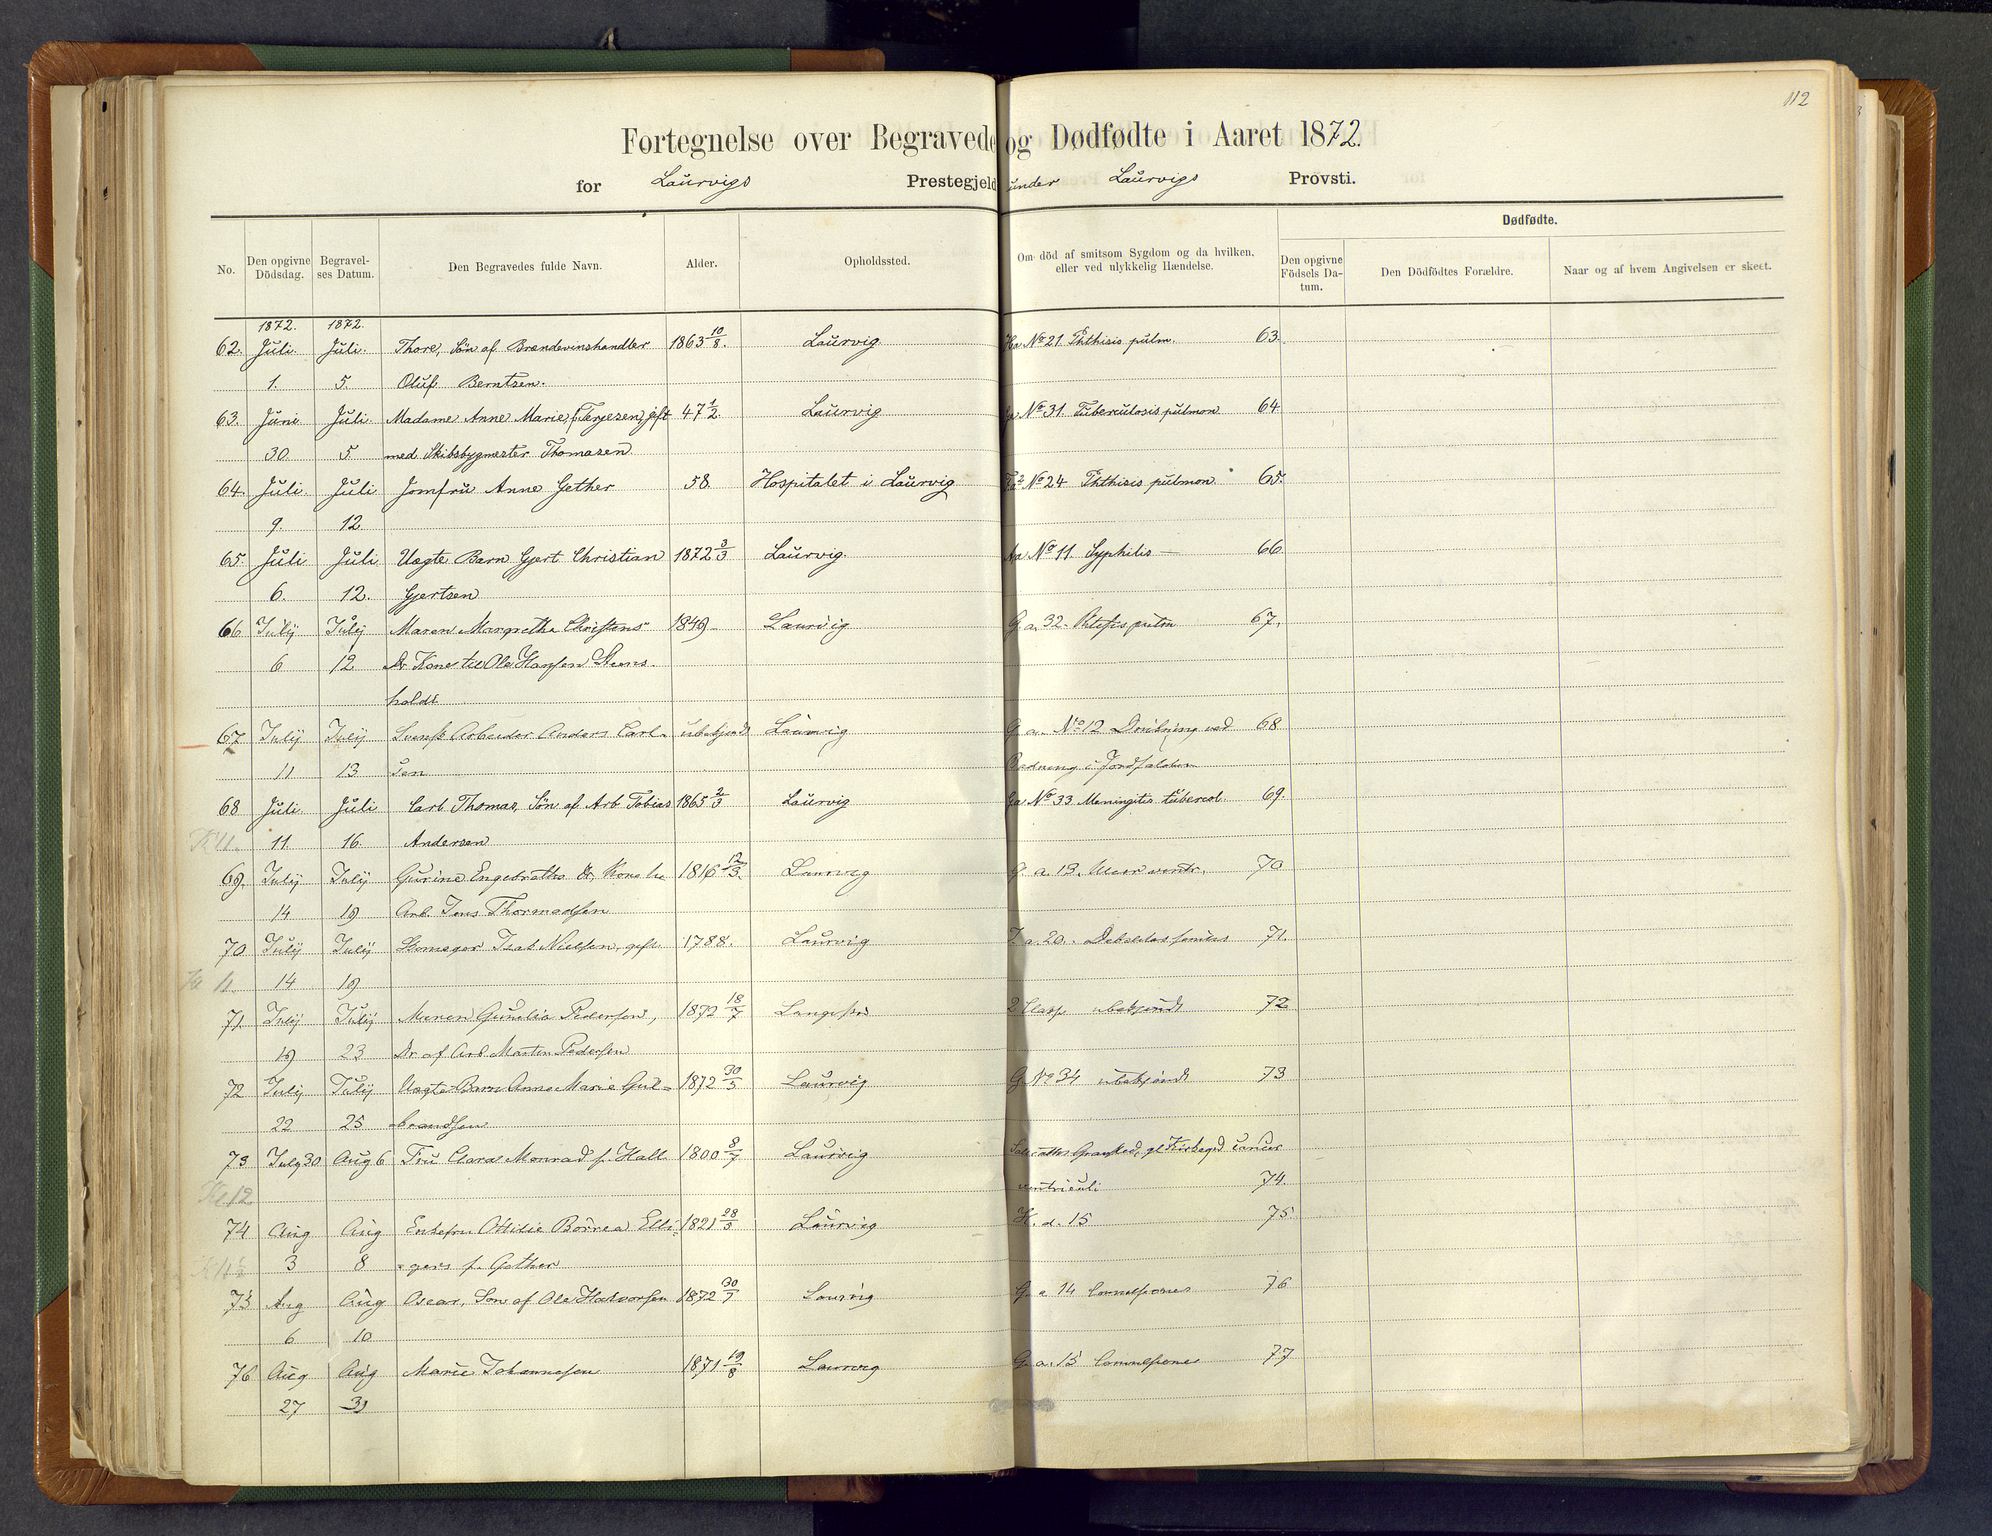 112
Fortegnelse over Begravede og Dødfødte i Aaret 1872.
for Laurvigs Prestegjeld under Laurvigs Provsti.
Dødfødte.
No. Den opgivne Dödsdag. Begravelses Datum. Den Begravedes fulde Navn. Alder. Opholdssted. Om död af smitsom Sygdom og da hvilken, eller ved ulykkelig Hændelse. Den opgivne Födsels Datum. Den Dödfödtes Forældre. Naar og af hvem Angivelsen er skeet.
1872. 1872.
62. Juli. Juli. Thore, Sön af Brændevinshandler 1863 10/8. Laurvig Ha No 21 Phthisis pulm. 63.
1. 5. Oluf Berntsen.
63. Juni Juli. Madame Anne Marie, f. Terjesen, gift 47 1/2. Laurvig Ga No 31 Tuberculosis pulmon 64.
30. 5 med Skibsbygmester Thomasen
64. Juli. Juli Jomfru Anne Gether 58. Hospitalet i Laurvig No 24 Phthisis pulmon. 65.
9. 12.
65. Juli Juli Uægte Barn Gjert Christian 1872 3/3 Laurvig. No 11. Syphilis — 66
6. 12. Gjertsen
66 Julij Julij Maren Margrethe Christens- 1849 Laurvig G a 32. 67.
6 12 Dr Kone til Ole Hansen Steens
holdt
67. Julij Julij Svensk Arbeider Anders Carl- ubekjendt Laurvig G a. No 12 ved 68
11 13 sen
68 Juli Juli Carl Thomas, Sön af Arb Tobias 1865 2/3 Laurvig Ga No 33 Meningitis tubercol. 69.
11. 16. Andersen
69. Julij Julij Gurine Engebreths Dr, Kone til 1816 12/3. Laurvig G. a. 13. Ulcer ventr. 70
14 19 Arb. Jens Thormodsen
70 Julij Julij Skomager Isak Nielsen, gift 1788. Laurvig a. 20. 71.
14 19
71. Julij Julij Maren Gunelia Pedersen, 1872 18/7 Langestrd 2 Classe ubekjendt 72
19 23 Dr af Arb Morten Pedersen
72 Julij Julij Uægte Barn Anne Marie Gul- 1872 30/5 Laurvig G. No 34 ubekjendt 73
22 25 brandsen
73 July 30 Aug 6 Fru Clara Monrad f. Hall 1800 8/7 Laurvig gl Kirkegd cancer
Kl. 12 ventriculi 74.
74 Aug Aug Enkefru Ottilie Börrea Elli- 1821 28/5 Laurvig H. d. 15 75
3 8 -gers f. Gether
75 Aug Aug Oscar, Sön af Ole Halvorsen 1872 30/7 Laurvig G. a 14 76
6 10
76 Aug Aug Marie Johannesen 1871 19/8 Laurvig G. a. 15 77
27 31